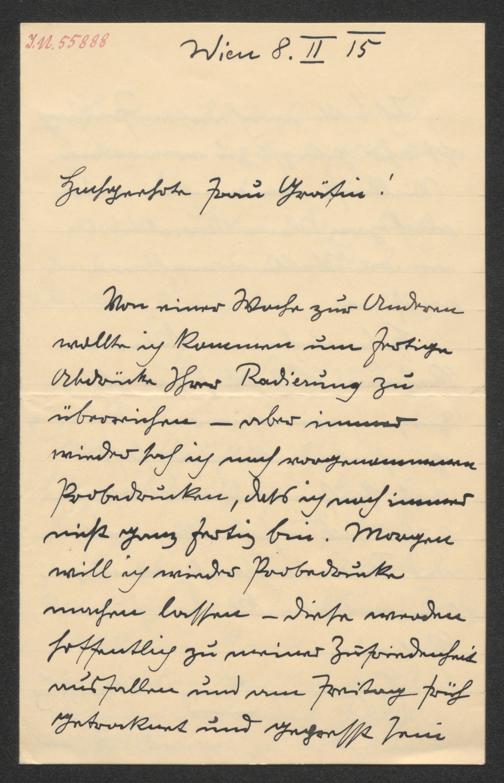 J.N. 55888
Wien 8. II 15
Hochgeehrte Frau Gräfin!
Von einer Woche zur Anderen
wollte ich kommen um fertige
Abdrücke Ihrer Radierung zu
überreichen – aber immer
wieder sah ich nach vorgenommenen
Probedrucken, dass ich noch immer
nicht ganz fertig bin. Morgen
will ich wieder Probedrucke
machen lassen – diese werden
hoffentlich zu meiner Zufriedenheit
ausfallen und am Freitag früh
getrocknet und gepresst sein